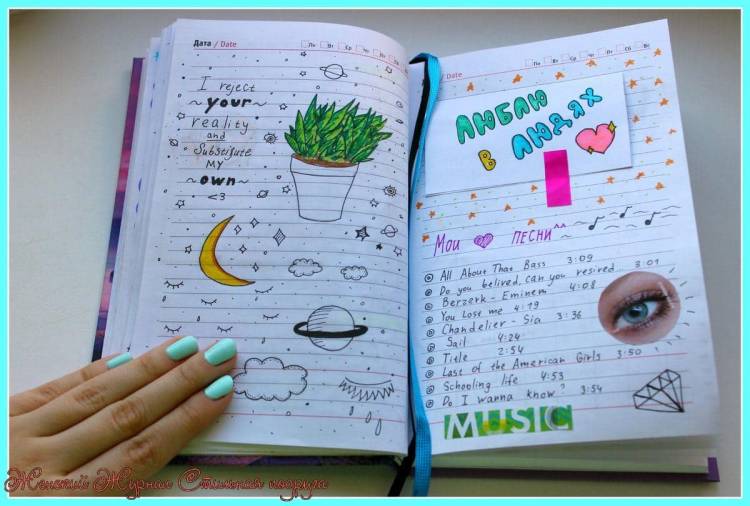 Дата / Date
Пн Вт Ср Чт Пт Сб Вс
I reject
~ your ~
reality
and
Substitute
MY
~ own ~
<3
Date
Пн Вт Ср Чт Пт Сб Вс
ЛЮБЛЮ
В ЛЮДЯХ
Мои песни^^
All About That Bass 3:09
Do you belived, can you resired 3:01
Berzerk - Eminem 4:08
You Lose me 4:19
Chandelier - Sia 3:36
Sail 4:24
Title 2:54
Last of the American Girls 3:50
Schooling life 4:53
Do I wanna know? 3:54
MUSIC
Женский Журнал Стильная подруга